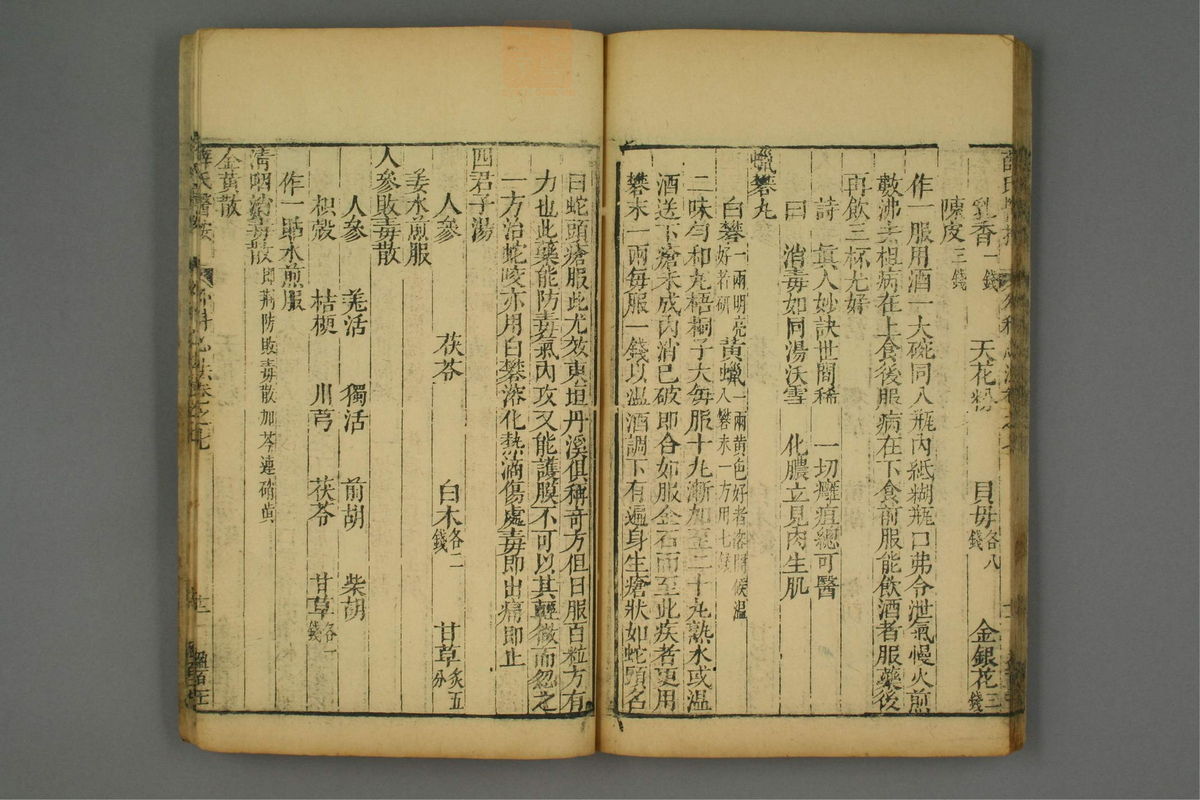 乳香一錢 天花粉 貝母各八錢 金銀花三錢
陳皮三錢
作一服用酒一大碗同入瓶內紙糊瓶口弗令泄氣慢火煎
數沸去柤病在上食後服病在下食前服能飲酒者服藥後
再飲三杯尤好
詩 眞人妙訣世間稀 一切癰疽總可醫
曰 消毒如同湯沃雪 化膿立見肉生肌
蠟礬丸
白礬一兩明亮好者研 黃蠟一兩黃色好者溶開候溫入礬末一方用七錢
二味勻和丸梧桐子大每服十丸漸加至二十丸熟水或溫
酒送下瘡未成內消已破即合如服金石而至此疾者更用
礬末一兩每服一錢以溫酒調下有遍身生瘡狀如蛇頭名
曰蛇頭瘡服此尤效東垣丹溪俱稱奇方但日服百粒方有
力也此藥能防毒氣內攻又能護膜不可以其輕微而忽之
一方治蛇咬亦用白礬溶化熱滴傷處毒即出痛即止
四君子湯
人參 茯苓 白木各二錢 甘草炙五分
姜水煎服
人參敗毒散
人參 羗活 獨活 前胡 柴胡
枳殼 桔梗 川芎 茯苓 甘草各一錢
作一貼水煎服
清咽消毒散即荊防敗毒散加芩連硝黃
金黃散
薛氏醫按 外科心法卷之七